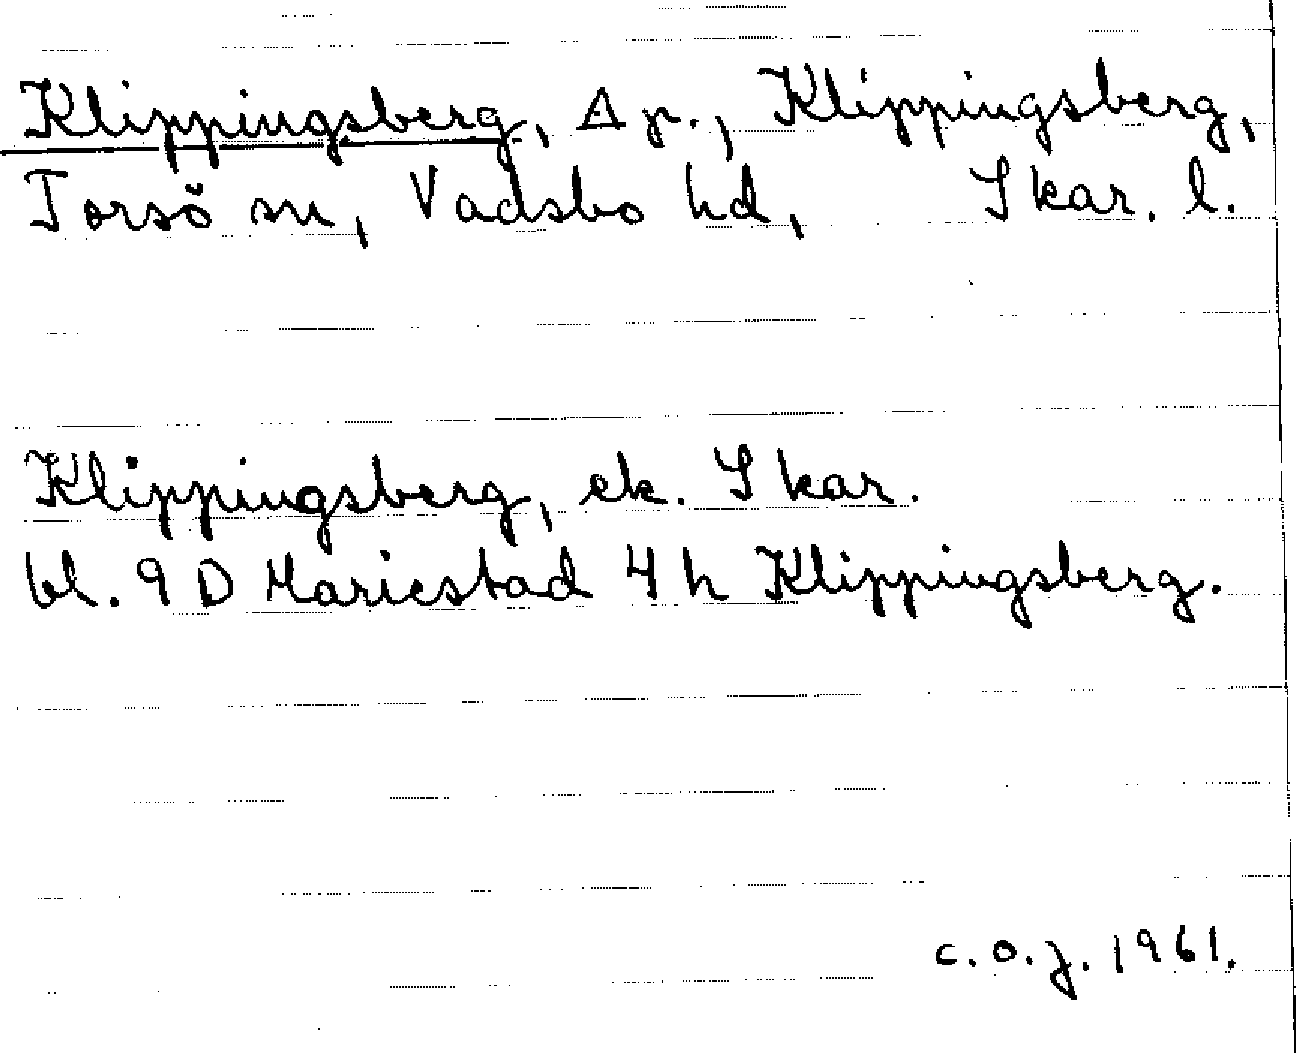 Klippingsberg, Δ p., Klippingsberg,
Torsö sn, Vadsbo hd, Skar. l.
Klippingsberg, ek. Skar.
bl. 9 D Mariestad 4 h Klippingsberg.
c.o.j. 1961.